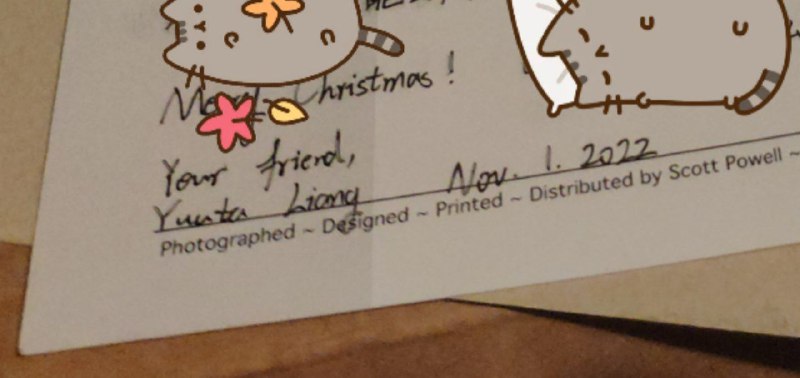 Christmas!
Your friend,
Yuuta Liang Nov. 1. 2022
Photographed ~ Designed ~ Printed ~ Distributed by Scott Powell ~